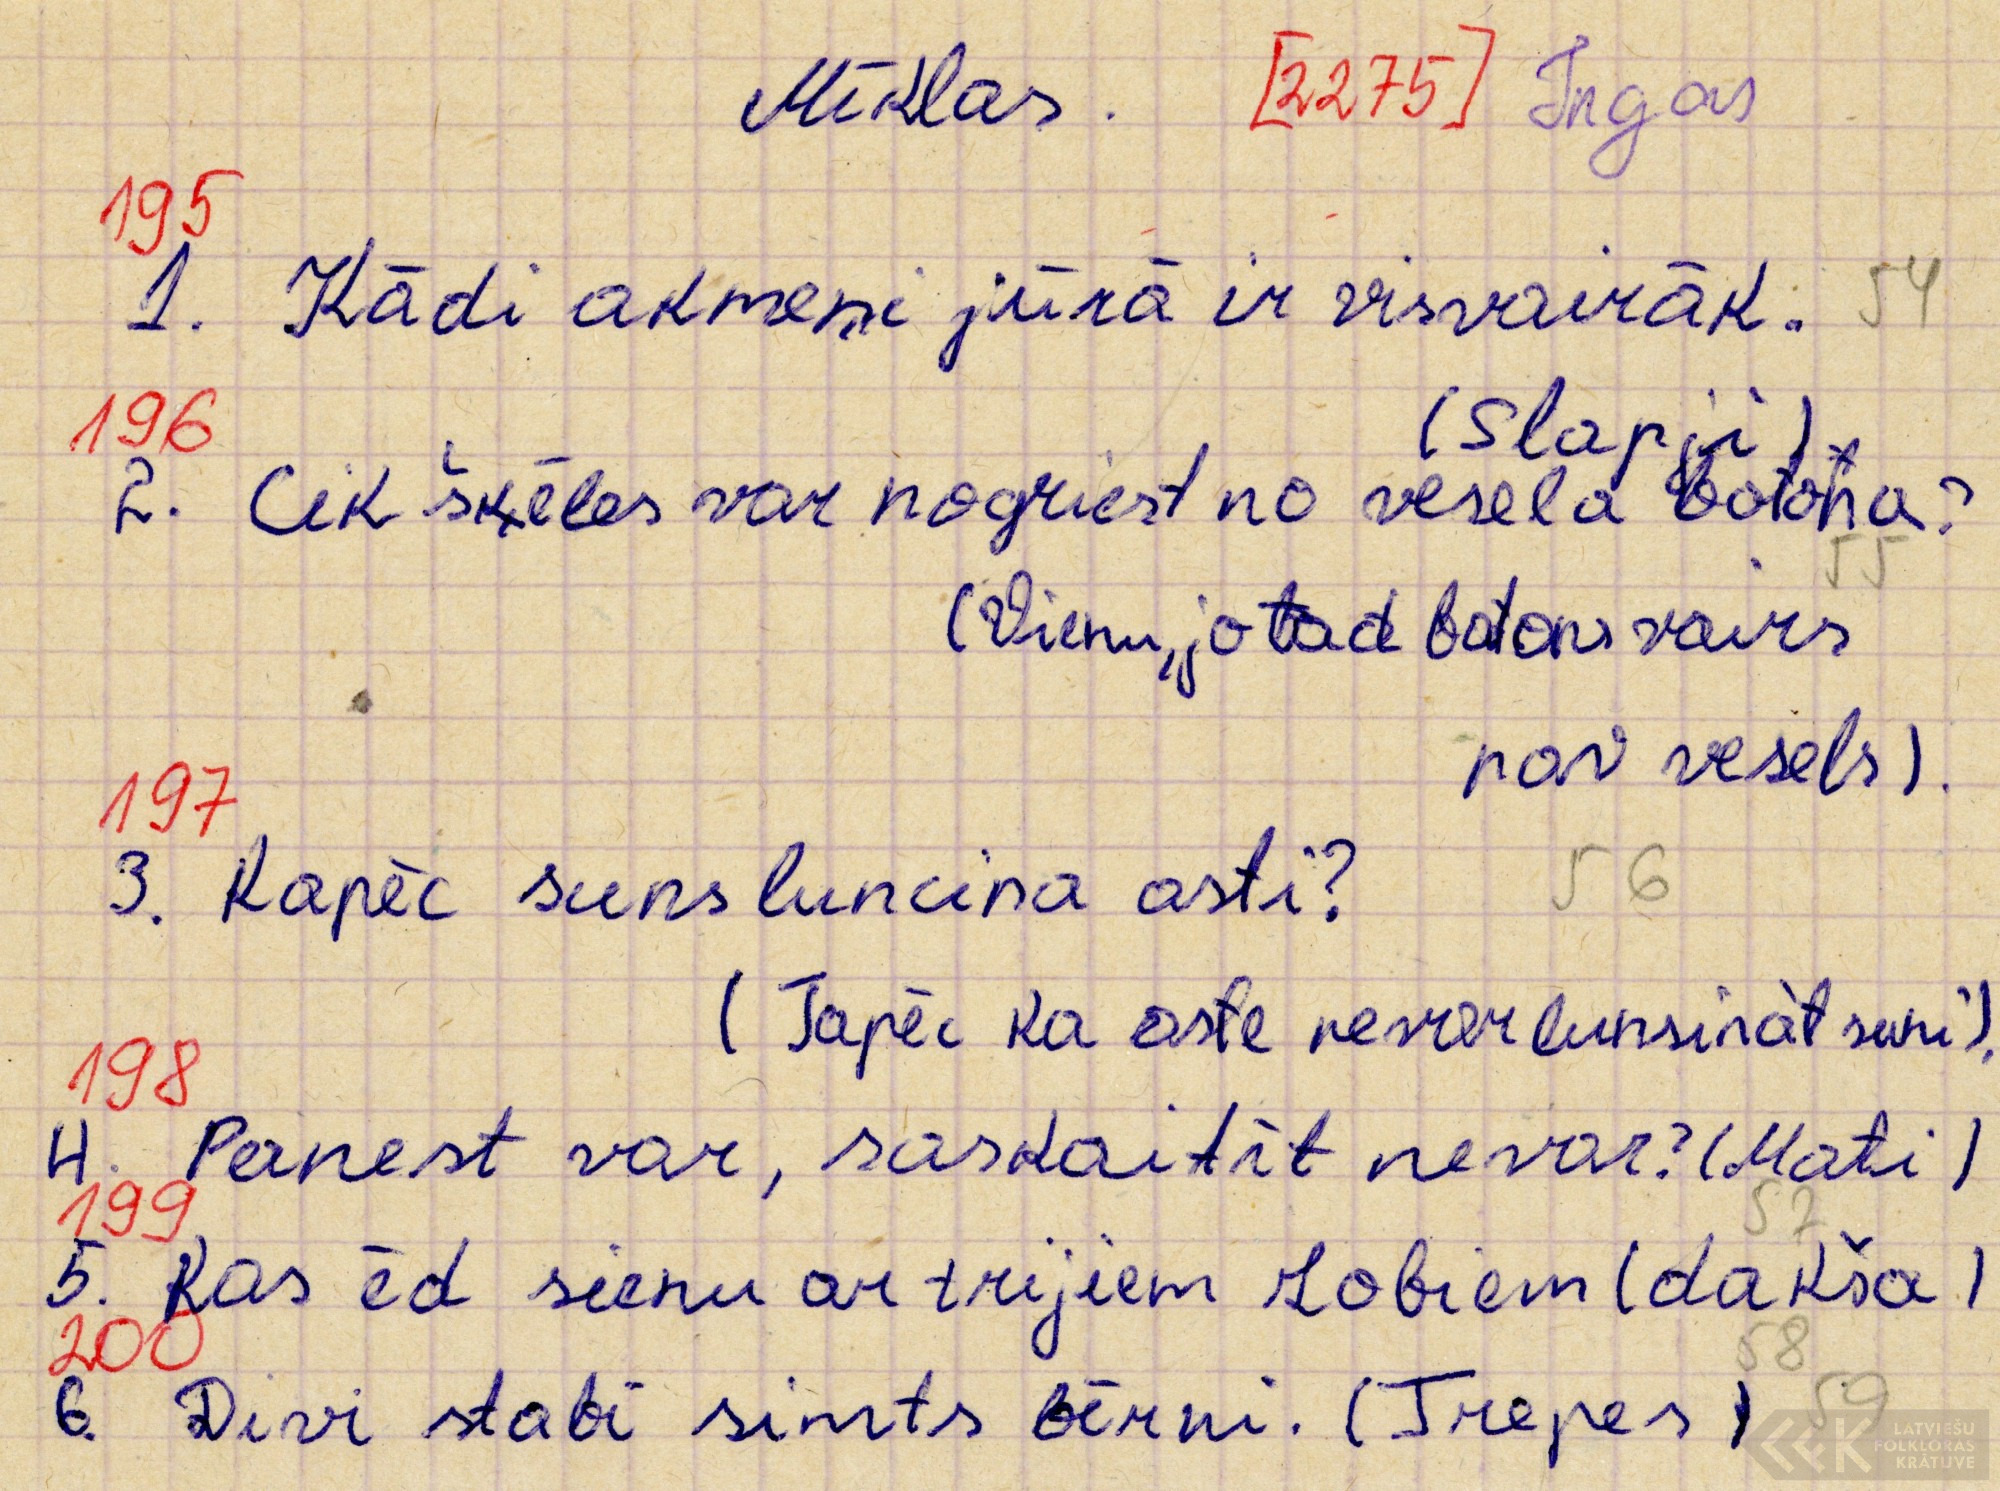 Mīklas. [2275] Ingas
195
1. Kādi akmeņi jūrā ir visvairāk. 54
(Slapji)
196
2. Cik šķēles var nogriest no vesela batona?
55
(Vienu, jo tad batons vairs
nav vesels).
197
3. Kapēc suns luncina asti? 56
(Tapēc ka aste nevar lunsināt suni).
198
4. Panest var, saskaitīt nevar? (Mati)
57
199
5. Kas ēd sienu ar trijiem zobiem (dakša)
58
200
6. Divi stabi simts bērni. (Trepes) 59
LATVIEŠU
FOLKLORAS
KRĀTUVE